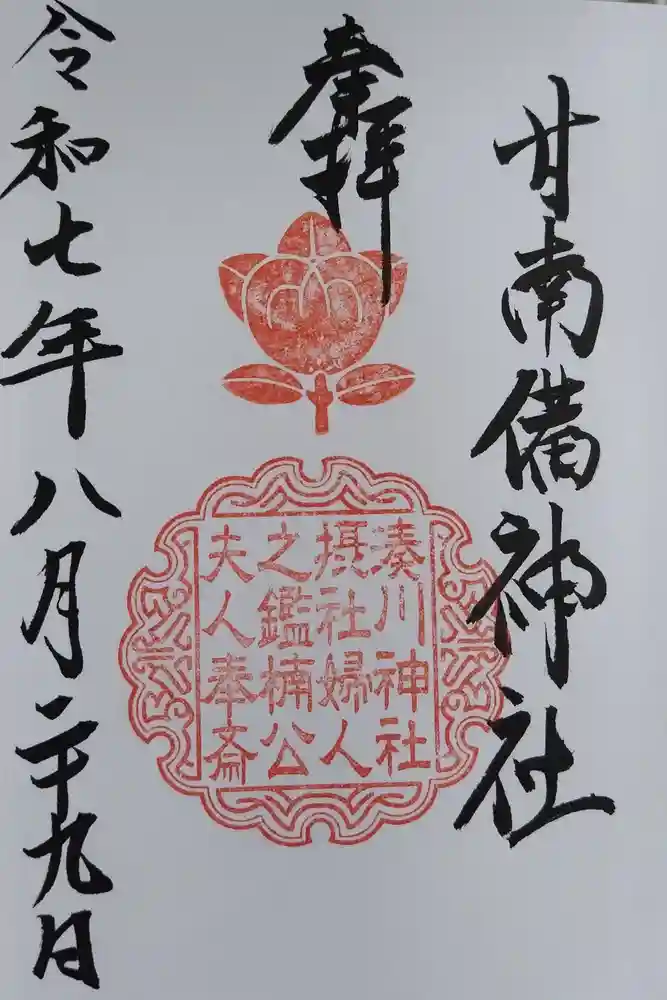 甘南備神社
奉拝
湊川神社
摂社婦人
之鑑楠公
夫人奉斎
令和七年八月二十九日